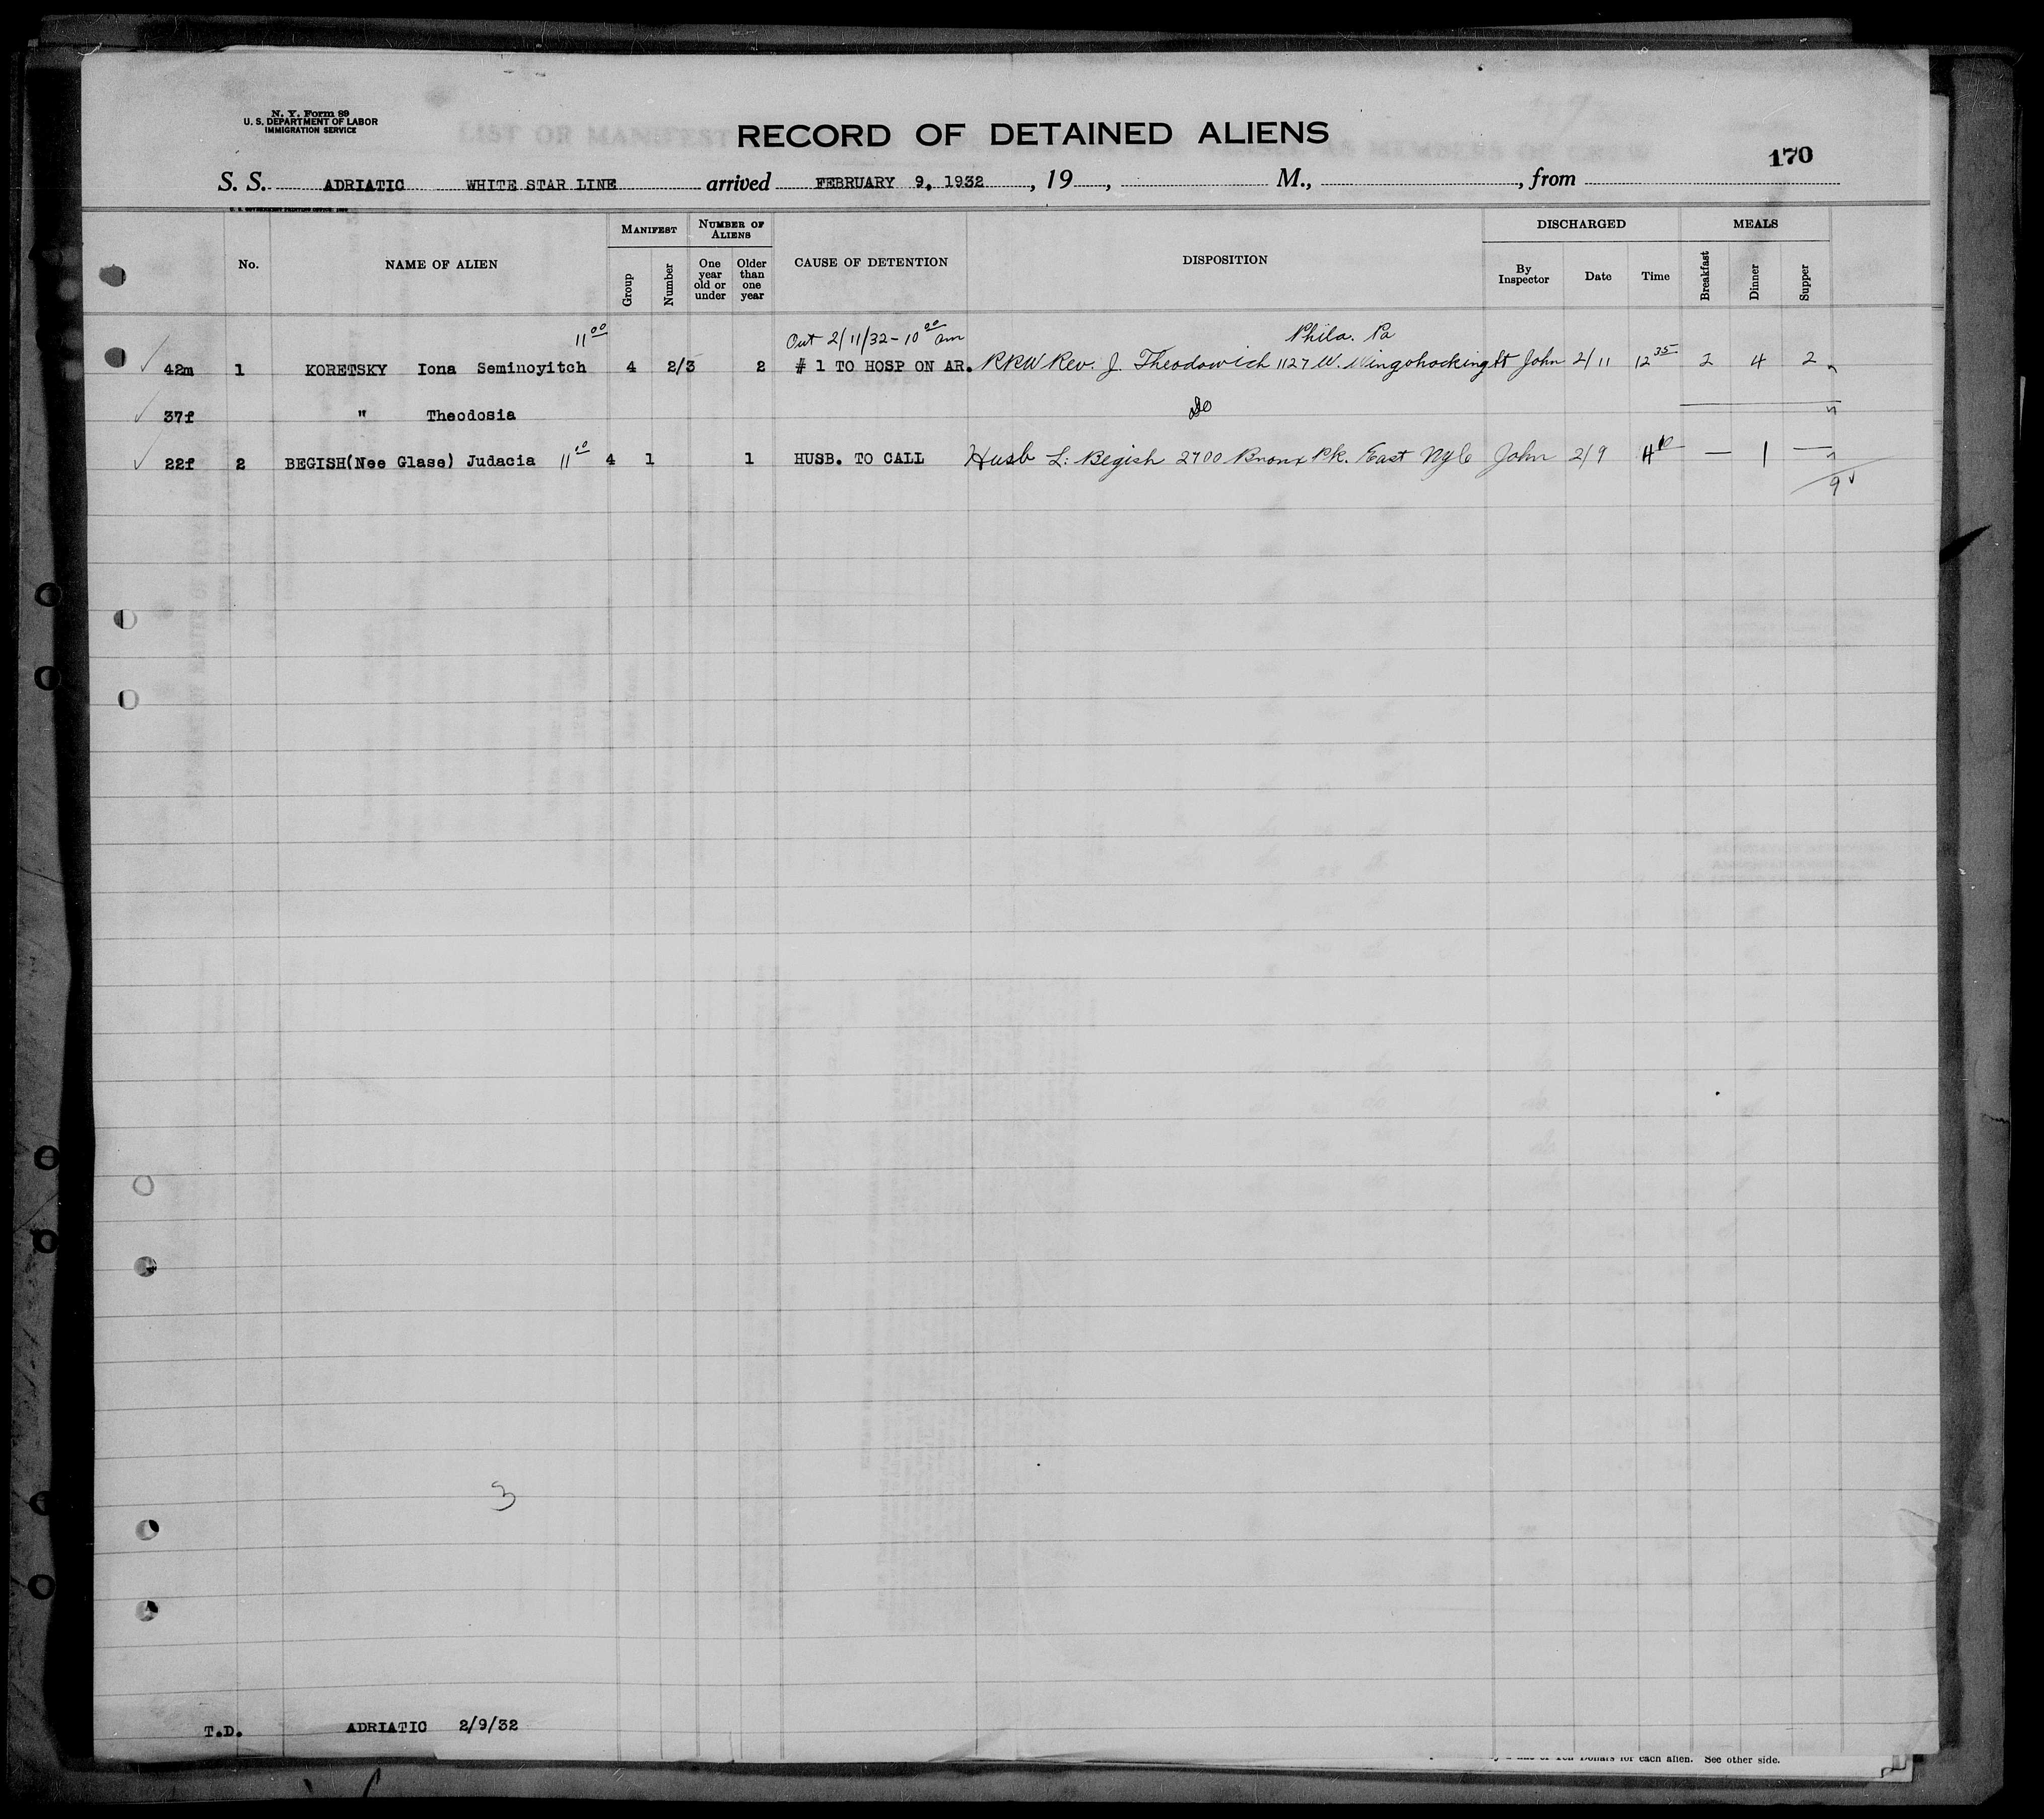 N. Y. Form 89
U. S. DEPARTMENT OF LABOR
IMMIGRATION SERVICE
RECORD OF DETAINED ALIENS
170
S. S. ADRIATIC WHITE STAR LINE arrived FEBRUARY 9, 1932, 19 , M., , from
No.
NAME OF ALIEN
MANIFEST
Group
Number
NUMBER OF ALIENS
One year old or under
Older than one year
CAUSE OF DETENTION
DISPOSITION
DISCHARGED
By Inspector
Date
Time
MEALS
Breakfast
Dinner
Supper
11 00 Out 2/11/32 - 10 00 am Phila. Pa
42m 1 KORETSKY Iona Seminoyitch 4 2/3 2 # 1 TO HOSP ON AR. Rev. J. Theodowich 1127 W. Wingohocking St John 2/11 12 35 2 4 2
37f " Theodosia Do
22f 2 BEGISH(Nee Glase) Judacia 11 00 4 1 1 HUSB. TO CALL Husb L. Begish 2700 Bronx Pk. East Nyc John 2/9 — 1 —
9
3
T.D. ADRIATIC 2/9/32
for each alien. See other side.